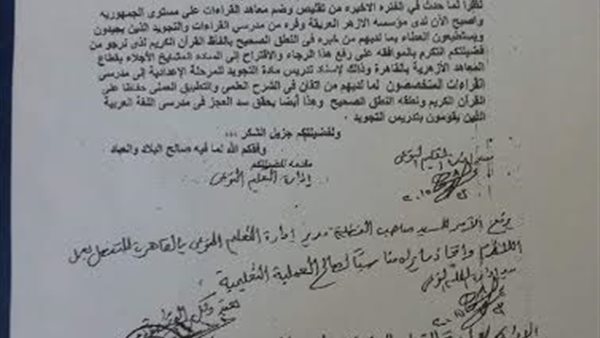 نظرا لما حدث في الفتره الاخيره من تقليص وضم معاهد القراءات على مستوى الجمهوريه
واصبح الأن لدى مؤسسه الازهر العريقة وفره من مدرسي القراءات والتجويد الذين يجيدون
ويستطيعون العطاء بما لديهم من خبره فى النطق الصحيح بالفاظ القرآن الكريم لذى نرجو من
فضيلتكم التكرم بالموافقه على رفع هذا الرجاء والاقتراح إلى الساده المشايخ الأجلاء بقطاع
المعاهد الأزهرية بالقاهرة وذلك لإسناد تدريس مادة التجويد للمرحلة الإعدادية إلى مدرسي
القراءات المتخصصون لما لديهم من اتقان فى الشرح العلمى والتطبيق العملى حفاظا على
القرآن الكريم ونطقه النطق الصحيح وهذا أيضا يحقق سد العجز فى مدرسى اللغة العربية
اللذين يقومون بتدريس التجويد .
ولفضيلتكم جزيل الشكر ،،،
وفقكم الله لما فيه صالح البلاد والعباد
مقدمه لفضيلتكم
إدارة التعليم النوعى
يرفع الأمر للسيد صاحب الفضيلة مدير إدارة التعليم النوعى بالقاهرة للتفضل بعمل
اللازم واتخاذ ما يراه مناسبًا لصالح العملية التعليمية